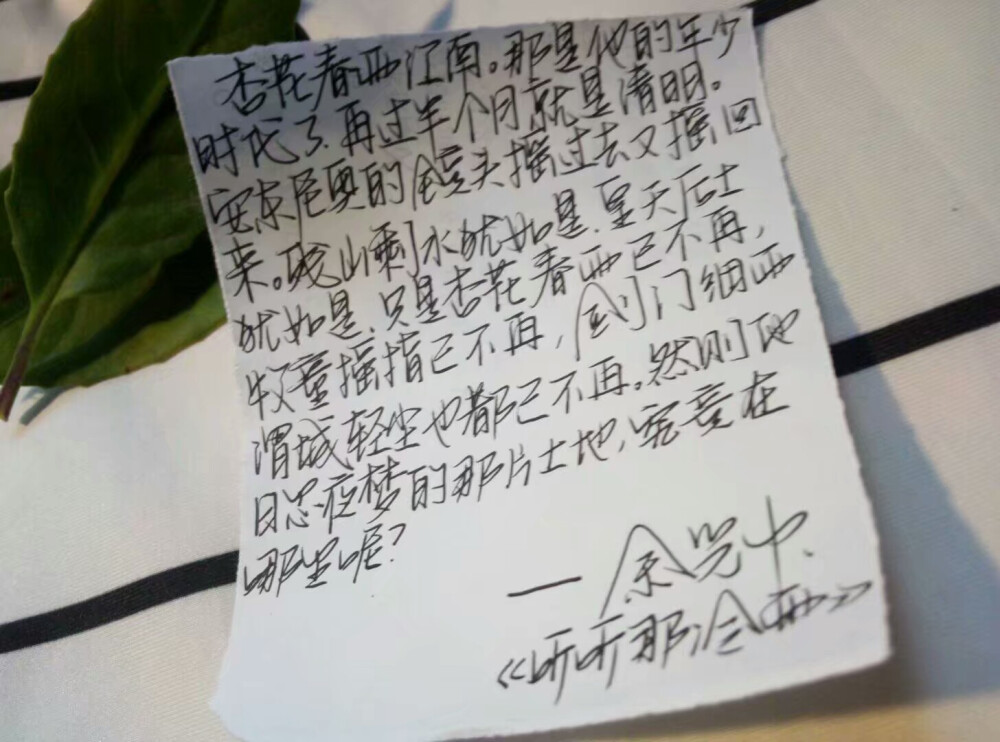 杏花春雨江南。那是他的年少
时代了。再过半个月就是清明。
安东尼奥的镜头摇过去又摇回
来。残山剩水犹如是，皇天后土
犹如是，只是杏花春雨已不再，
牧童摇指已不再，剑门细雨
渭城轻尘也都已不再。然则他
日思夜梦的那片土地，究竟在
哪里呢？
— 余光中
《听听那冷雨》